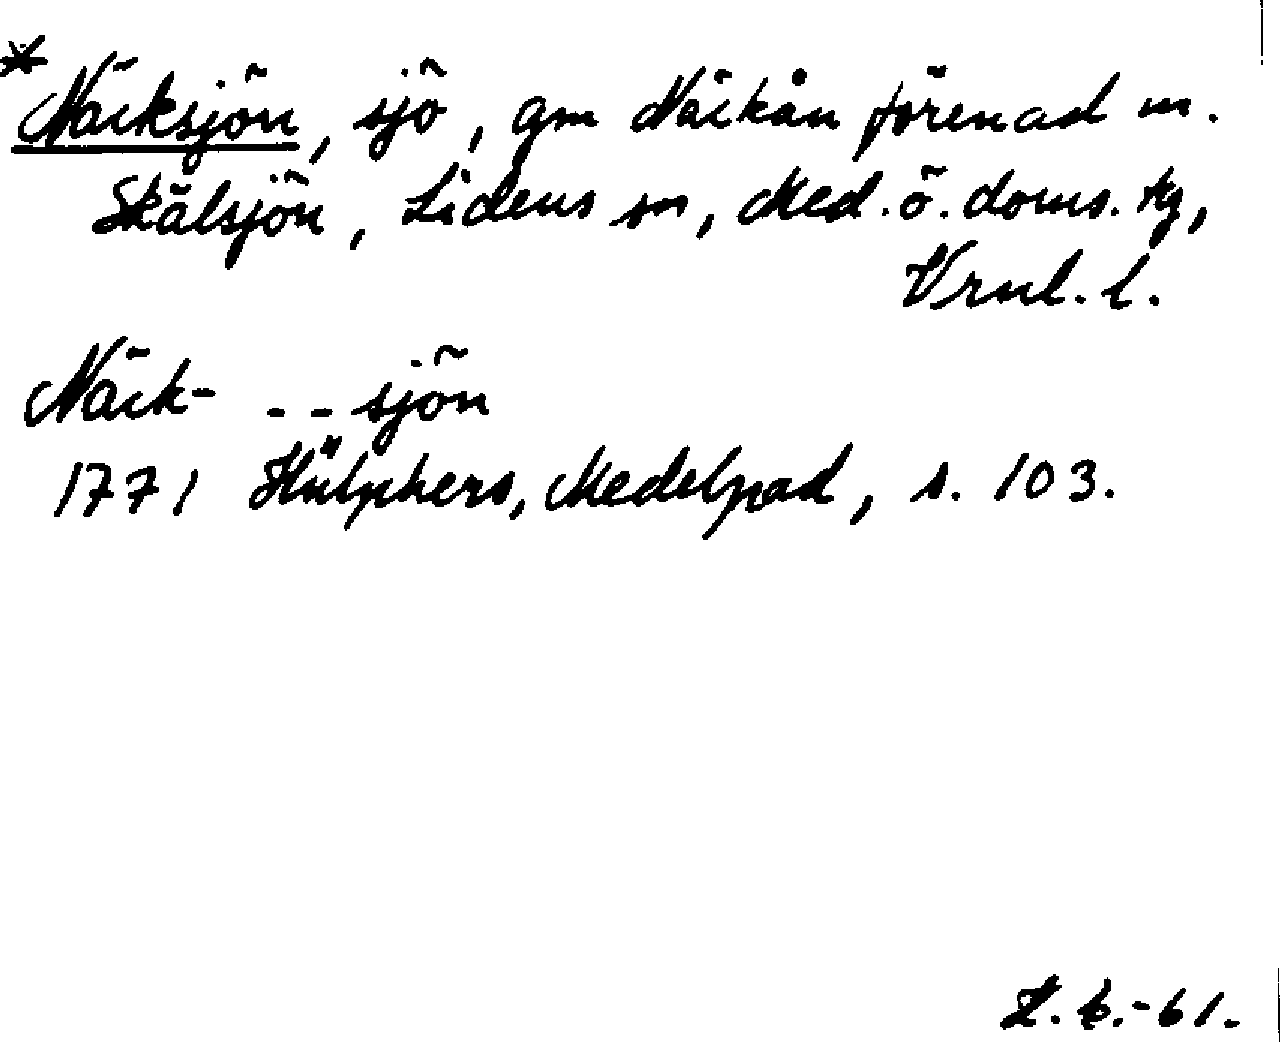 * Näcksjön, sjö, gm Näckån förenad m.
Skälsjön, Lidens sn, Med. ö. doms. tg,
Vrnl. l.
Näck- - - sjön
1771 Hülphers, Medelpad, s. 103.
-61.